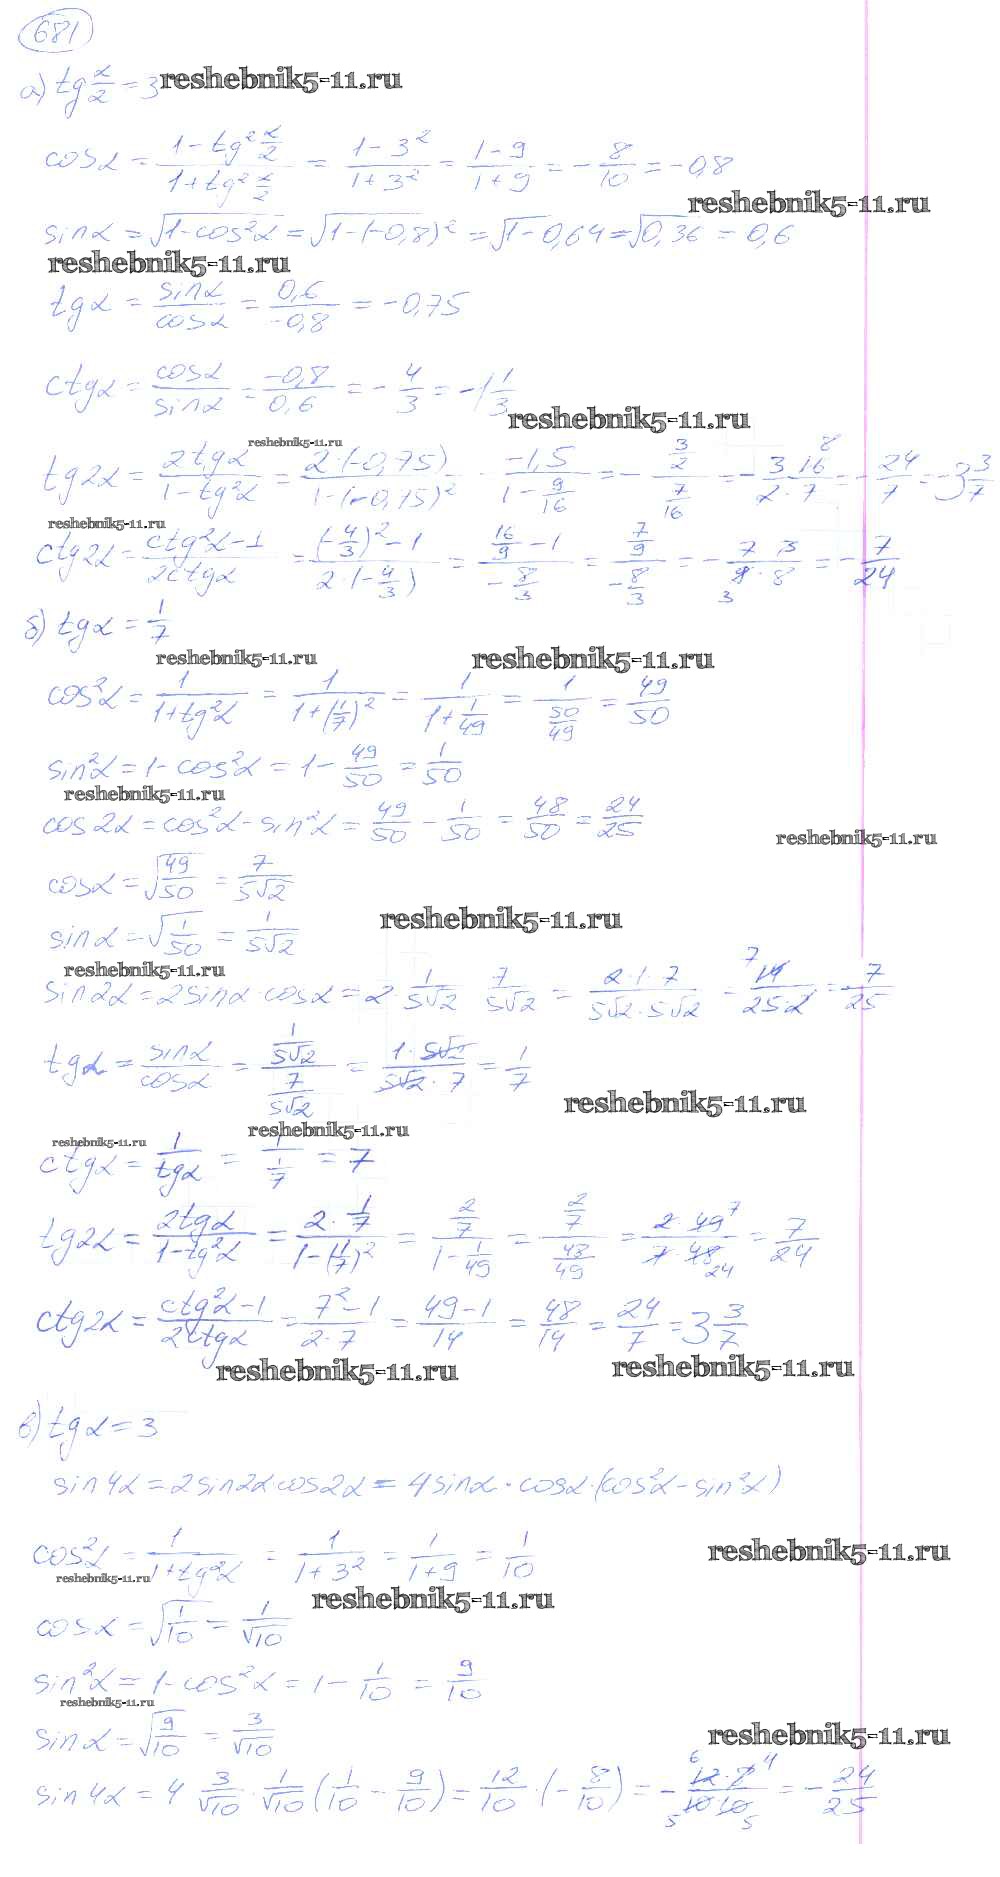 681
а) tg α/2 = 3 reshebnik5-11.ru
cosα = (1 - tg² α/2)/(1 + tg² α/2) = (1 - 3²)/(1 + 3²) = (1 - 9)/(1 + 9) = - 8/10 = -0,8
reshebnik5-11.ru
sinα = √(1 - cos²α) = √(1 - (-0,8)²) = √(1 - 0,64) = √0,36 = 0,6
reshebnik5-11.ru
tgα = sinα/cosα = 0,6/-0,8 = -0,75
ctgα = cosα/sinα = -0,8/0,6 = - 4/3 = -1 1/3
reshebnik5-11.ru
reshebnik5-11.ru
tg2α = 2tgα/(1 - tg²α) = 2·(-0,75)/(1 - (-0,75)²) = -1,5/(1 - 9/16) = - (3/2)/(7/16) = - (3·16 8)/(2·7) = - 24/7 = -3 3/7
reshebnik5-11.ru
ctg2α = (ctg²α - 1)/2ctgα = ((-4/3)² - 1)/(2·(-4/3)) = (16/9 - 1)/(-8/3) = (7/9)/(-8/3) = - (7·3)/(9·8) 3 = - 7/24
б) tgα = 1/7
reshebnik5-11.ru reshebnik5-11.ru
cos²α = 1/(1 + tg²α) = 1/(1 + (1/7)²) = 1/(1 + 1/49) = 1/(50/49) = 49/50
sin²α = 1 - cos²α = 1 - 49/50 = 1/50
reshebnik5-11.ru
cos2α = cos²α - sin²α = 49/50 - 1/50 = 48/50 = 24/25
reshebnik5-11.ru
cosα = √(49/50) = 7/(5√2)
reshebnik5-11.ru
sinα = √(1/50) = 1/(5√2)
reshebnik5-11.ru
sin2α = 2sinα·cosα = 2· 1/(5√2) 7/(5√2) = (2·1·7)/(5√2·5√2) = 7 14/(25·2) = 7/25
tgα = sinα/cosα = (1/(5√2))/(7/(5√2)) = (1·5√2)/(5√2·7) = 1/7
reshebnik5-11.ru
reshebnik5-11.ru reshebnik5-11.ru
ctgα = 1/tgα = 1/(1/7) = 7
tg2α = 2tgα/(1 - tg²α) = (2·1/7)/(1 - (1/7)²) = (2/7)/(1 - 1/49) = (2/7)/(48/49) = (2·49 7)/(7·48 24) = 7/24
ctg2α = (ctg²α - 1)/2ctgα = (7² - 1)/(2·7) = (49 - 1)/14 = 48/14 = 24/7 = 3 3/7
reshebnik5-11.ru reshebnik5-11.ru
в) tgα = 3
sin4α = 2sin2α cos2α = 4sinα·cosα·(cos²α - sin²α)
cos²α = 1/(1 + tg²α) = 1/(1 + 3²) = 1/(1 + 9) = 1/10
reshebnik5-11.ru
reshebnik5-11.ru
reshebnik5-11.ru
cosα = √(1/10) = 1/√10
sin²α = 1 - cos²α = 1 - 1/10 = 9/10
reshebnik5-11.ru
sinα = √(9/10) = 3/√10
reshebnik5-11.ru
sin4α = 4 3/√10 · 1/√10 (1/10 - 9/10) = 12/10 · (- 8/10) = - (6 12·8 4)/(5 10·10 5) = - 24/25